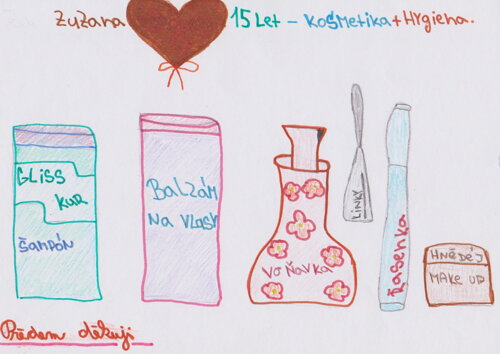 Zuzana 15 Let - Kosmetika + Hygiena.
GLISS
kur
Šampón
Balzám
na vlasy
Voňavka
Linky
Řasenka
Hnědej
Make up
Předem děkuji